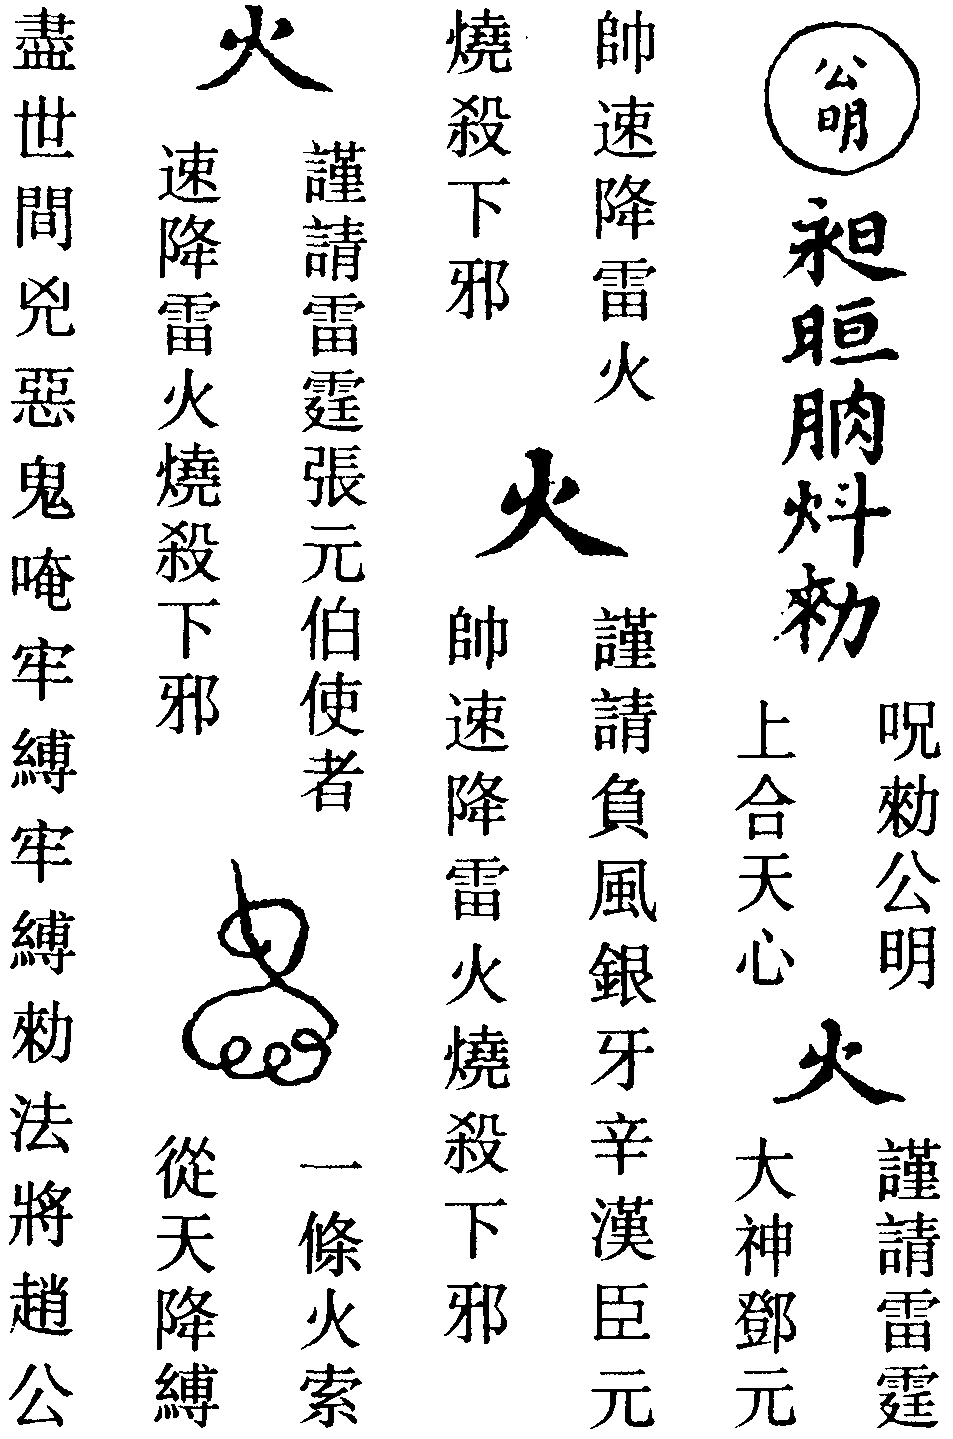 公明
昶晅朒炓勑
呪勑公明
上合天心
火
謹請雷霆
大神鄧元
帥速降雷火
燒殺下邪
火
謹請負風銀牙辛漢臣元
帥速降雷火燒殺下邪
火
謹請雷霆張元伯使者
速降雷火燒殺下邪
一條火索
從天降縛
盡世間兇惡鬼唵牢縛牢縛勑法將趙公